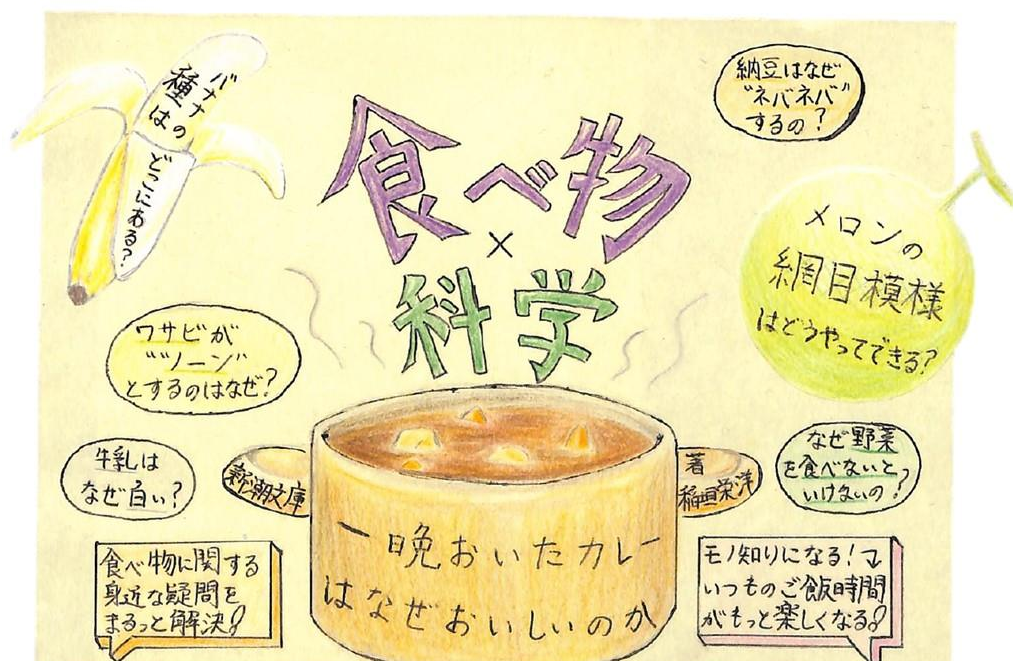 バナナの
種は
どこにある?
納豆はなぜ
"ネバネバ"
するの?
食べ物
×
科学
メロンの
網目模様
はどうやってできる?
ワサビが
"ツーン"
とするのはなぜ?
牛乳は
なぜ白い?
新潮文庫
著
稲垣栄洋
なぜ野菜
を食べないと
いけないの?
一晩おいたカレー
はなぜおいしいのか
食べ物に関する
身近な疑問を
まるっと解決!
モノ知りになる!
いつものご飯時間
がもっと楽しくなる!